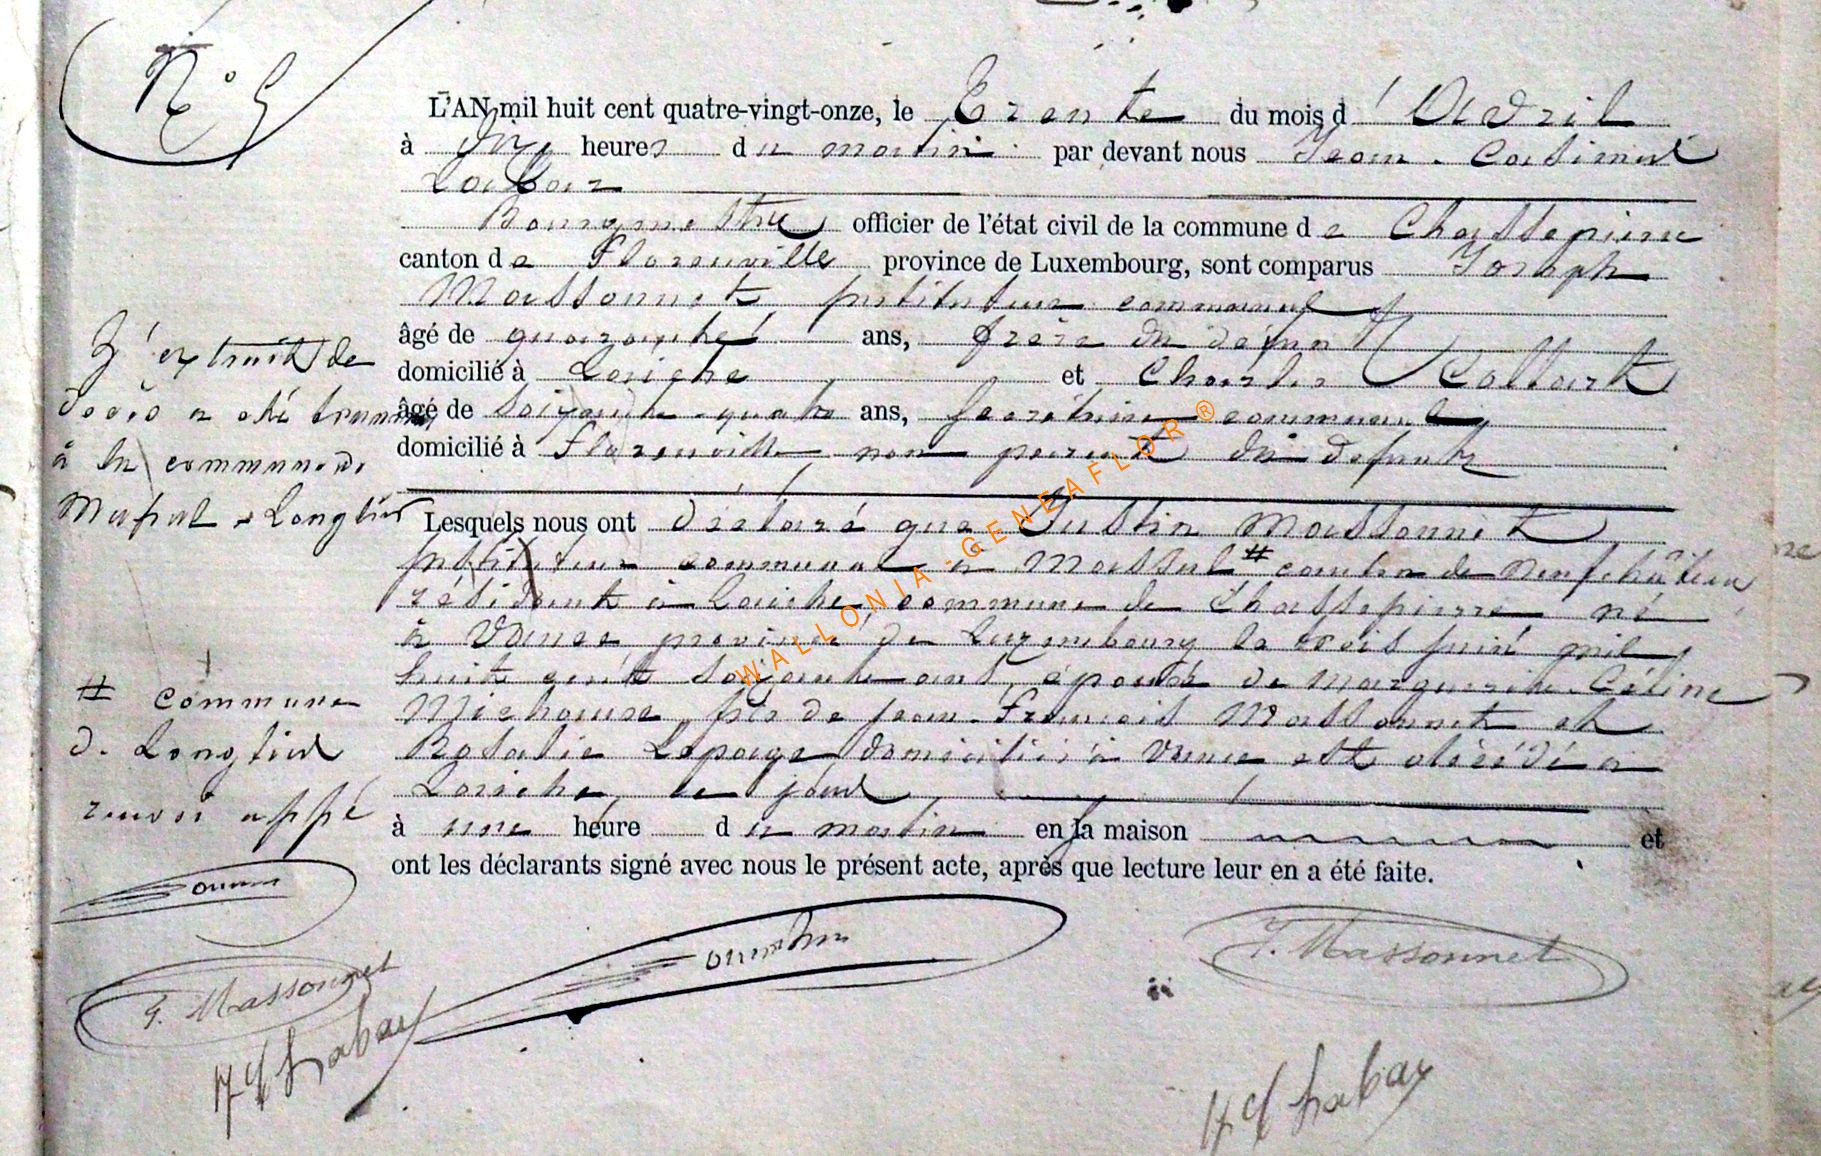 N° 5
L'AN mil huit cent quatre-vingt-onze, le Trente du mois d'Avril
à dix heures du matin par devant nous Jean-Casimir
Labar
Bourgmestre officier de l'état civil de la commune de Chassepierre
canton de Florenville province de Luxembourg, sont comparus Joseph
Massonnet instituteur communal
âgé de quarante ans, frère du défunt
domicilié à Laiche et Charles Collart
âgé de soixante-quatre ans, secrétaire communal
domicilié à Florenville non parent du défunt
Lesquels nous ont déclaré que Justin Massonnet
instituteur communal à Massul # canton de Neufchâteau
résidant à Laiche commune de Chassepierre né
à Vance province de Luxembourg le trois juin mil
huit cent soixante ans, époux de Marguerite-Céline
fils de Jean-François Massonnet et
Rosalie Lepage domiciliés à Vance est décédé à
Laiche, ce jour
à une heure du matin en la maison et
ont les déclarants signé avec nous le présent acte, après que lecture leur en a été faite.
L'extrait de
décès a été transmis
à la commune de
Longlier
# commune
d. Longlier
renvoi appé
J. Massonnet
J. Massonnet
Labar
Labar
WALLONIA-GENEAFLOR®